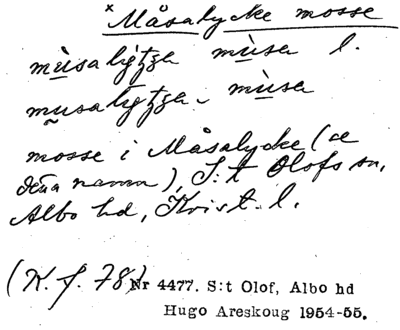 × Måsalycke mosse
mùsalýtʒa mùsa l.
musalýtʒa mùsa
mosse i Måsalycke (se
detta namn), S:t Olofs sn,
Albo hd, Krist. l.
(K. f. 78) Nr 4477. S:t Olof, Albo hd
Hugo Areskoug 1954-55.